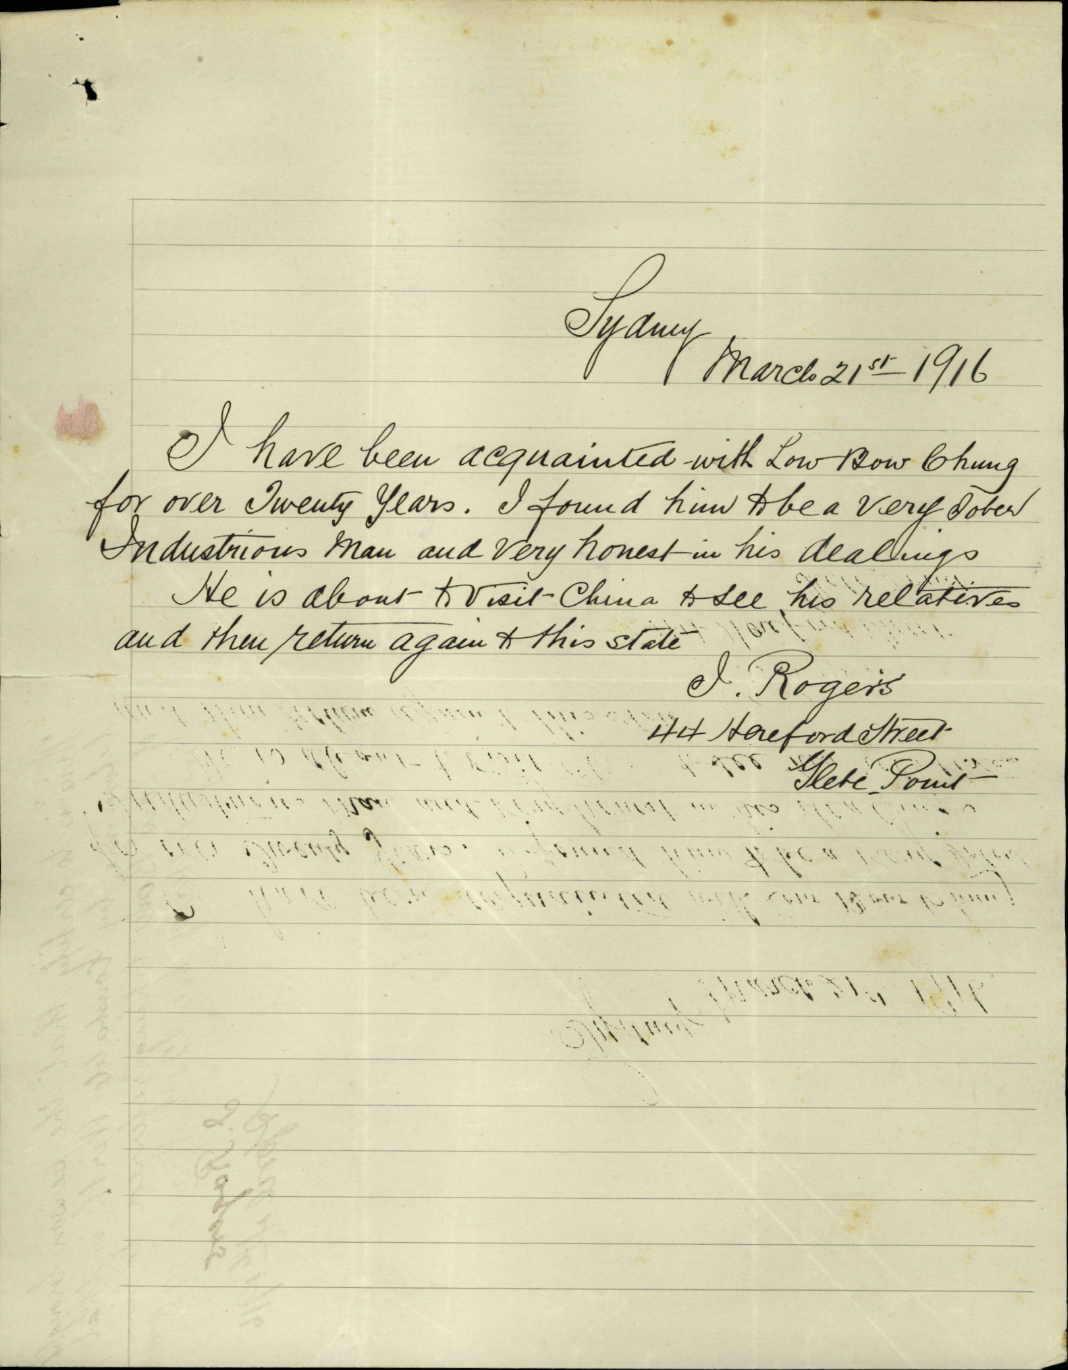 Sydney
March 21st 1916
I have been acquainted with Low Bow Chung
for over Twenty Years. I found him to be a very Sober
Industrious Man and very honest in his dealings
He is about to visit China to see his relatives
and then return again to this state
J. Rogers
44 Hereford Street
Glebe Point